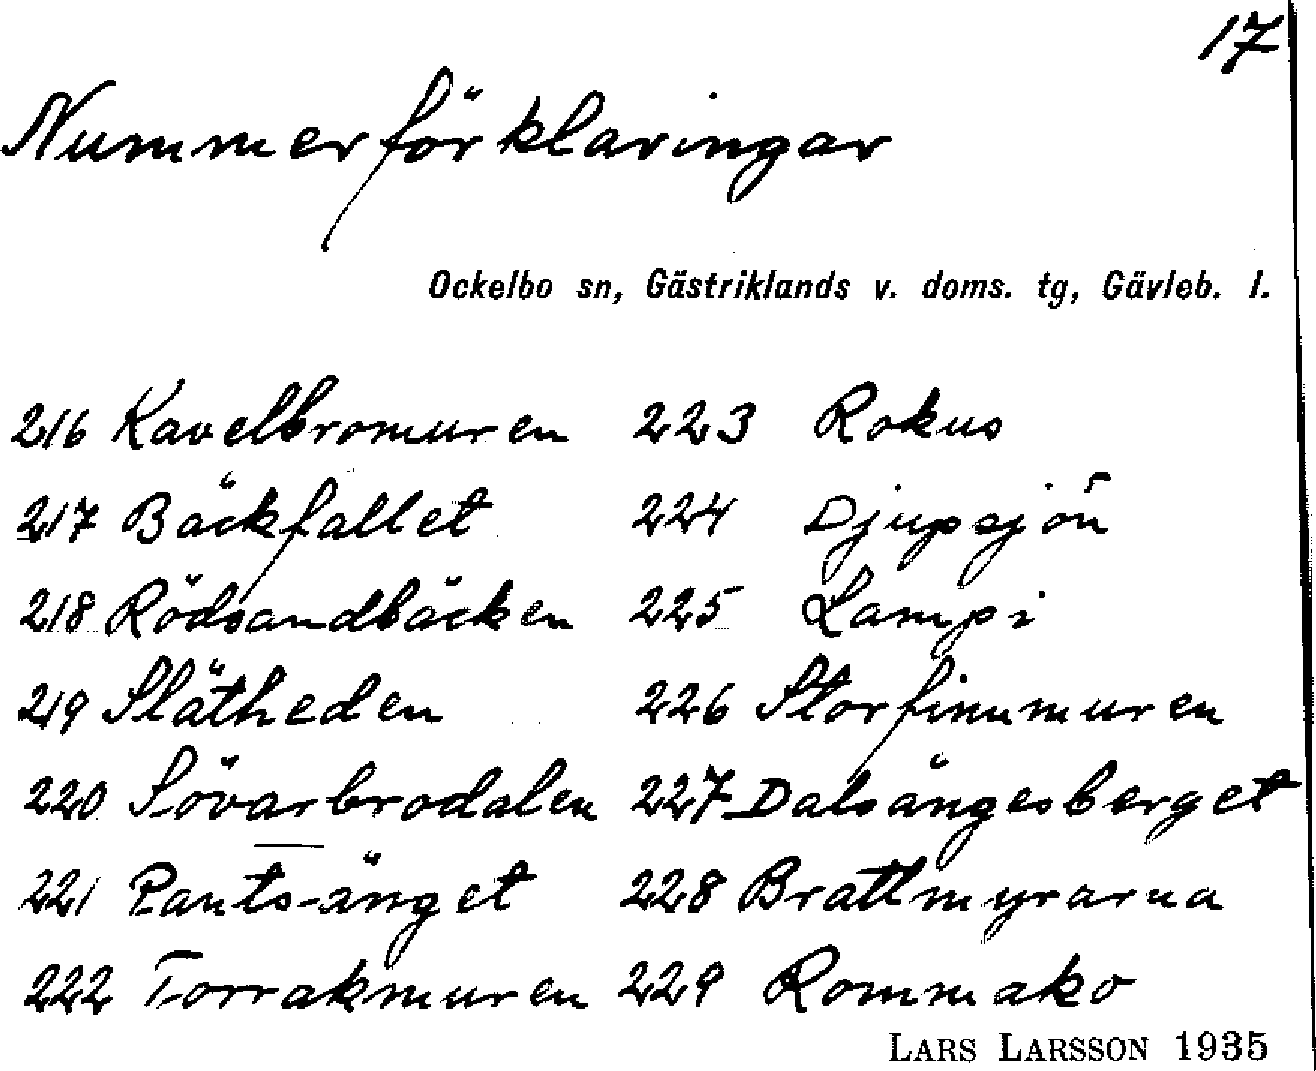 17
Nummerförklaringar
Ockelbo sn, Gästriklands v. doms. tg, Gävleb. l.
216 Kavelbromuren
217 Bäckfallet
218 Rödsandbäcken
219 Slätheden
220 Sövarbrodalen
221 Pants-änget
222 Torrakmuren
223 Rokus
224 Djupsjön
225 Lampi
226 Storfinnmuren
227 Dalsängesberget
228 Brattmyrarna
229 Rommako
LARS LARSSON 1935